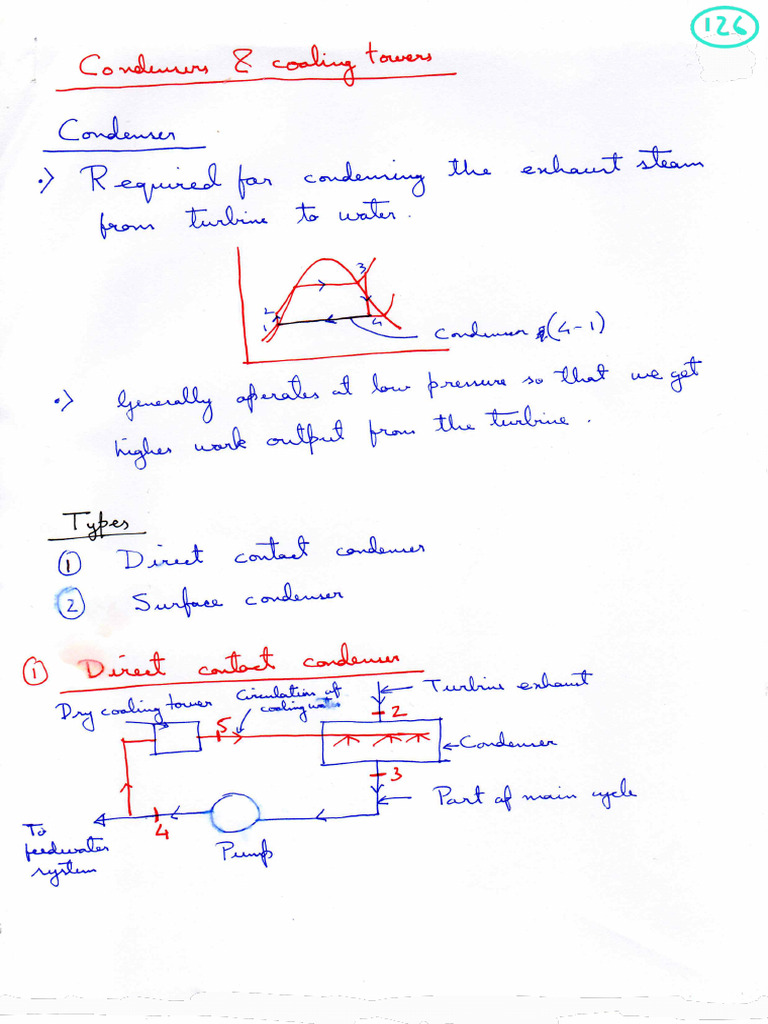 126
Condensers & cooling towers
Condenser
•> Required for condensing the exhaust steam
from turbine to water.
3
2
1
4
Condenser (4-1)
•> Generally operates at low pressure so that we get
higher work output from the turbine.
Types
① Direct contact condenser
② Surface condenser
① Direct contact condenser
Dry cooling tower
Circulation of
cooling water
Turbine exhaust
2
5
Condenser
3
Part of main cycle
4
To
feedwater
system
Pump